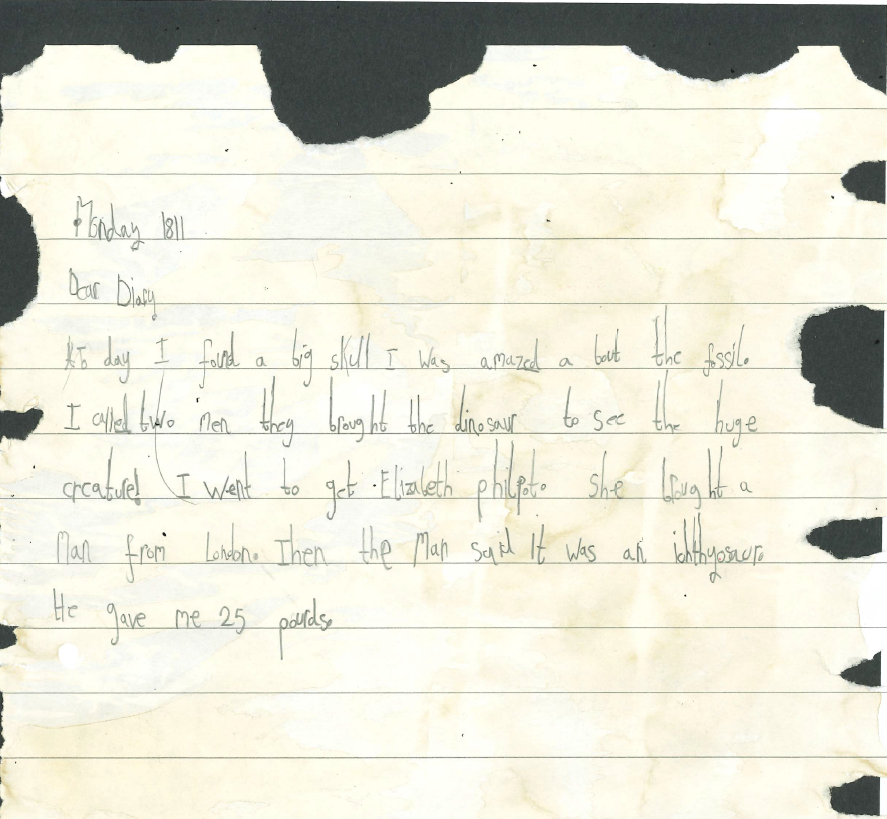 Monday 1811
Dear Diary
to day I found a big skull I was amazed a bout the fossil.
I called two men they brought the dinosaur to see the huge
creature! I went to get Elizabeth philpot. She brought a
Man from London. Then the Man said It was an ichthyosaur.
He gave me 25 pounds.